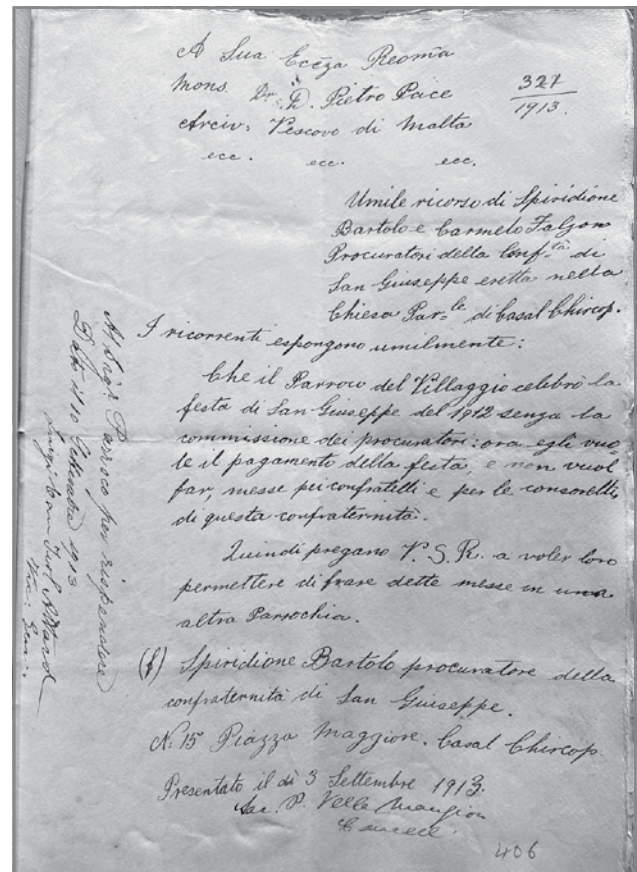 A Sua Eccza Revma
Mons. Dr. D. Pietro Pace
Arciv: Vescovo di Malta
ecc. ecc. ecc.
327
1913.
Umile ricorso di Spiridione
Bartolo e Carmelo Falzon
Procuratori della Conf.tà di
San Giuseppe eretta nella
Chiesa Par.le di Casal Chircop.
I ricorrenti espongono umilmente:
Che il Parroco del Villaggio celebrò la
festa di San Giuseppe del 1912 senza la
commissione dei procuratori: ora egli vuo-
le il pagamento della festa, e non vuol
far, messe pei confratelli e per le consorelle,
di questa confraternità.
Quindi pregano V. S. R. a voler loro
permettere di frare dette messe in una
altra Parrochia.
(f) Spiridione Bartolo procuratore della
confraternità di San Giuseppe.
N. 15 Piazza Maggiore. Casal Chircop.
Presentato il dì 3 Settembre 1913.
Sac. P. Vella Mangion
Cancell.
406
Al Sigr Parroco per rispondere
Dato il 10 Settembre 1913
Luigi Can. Attard
Vic: Gen: